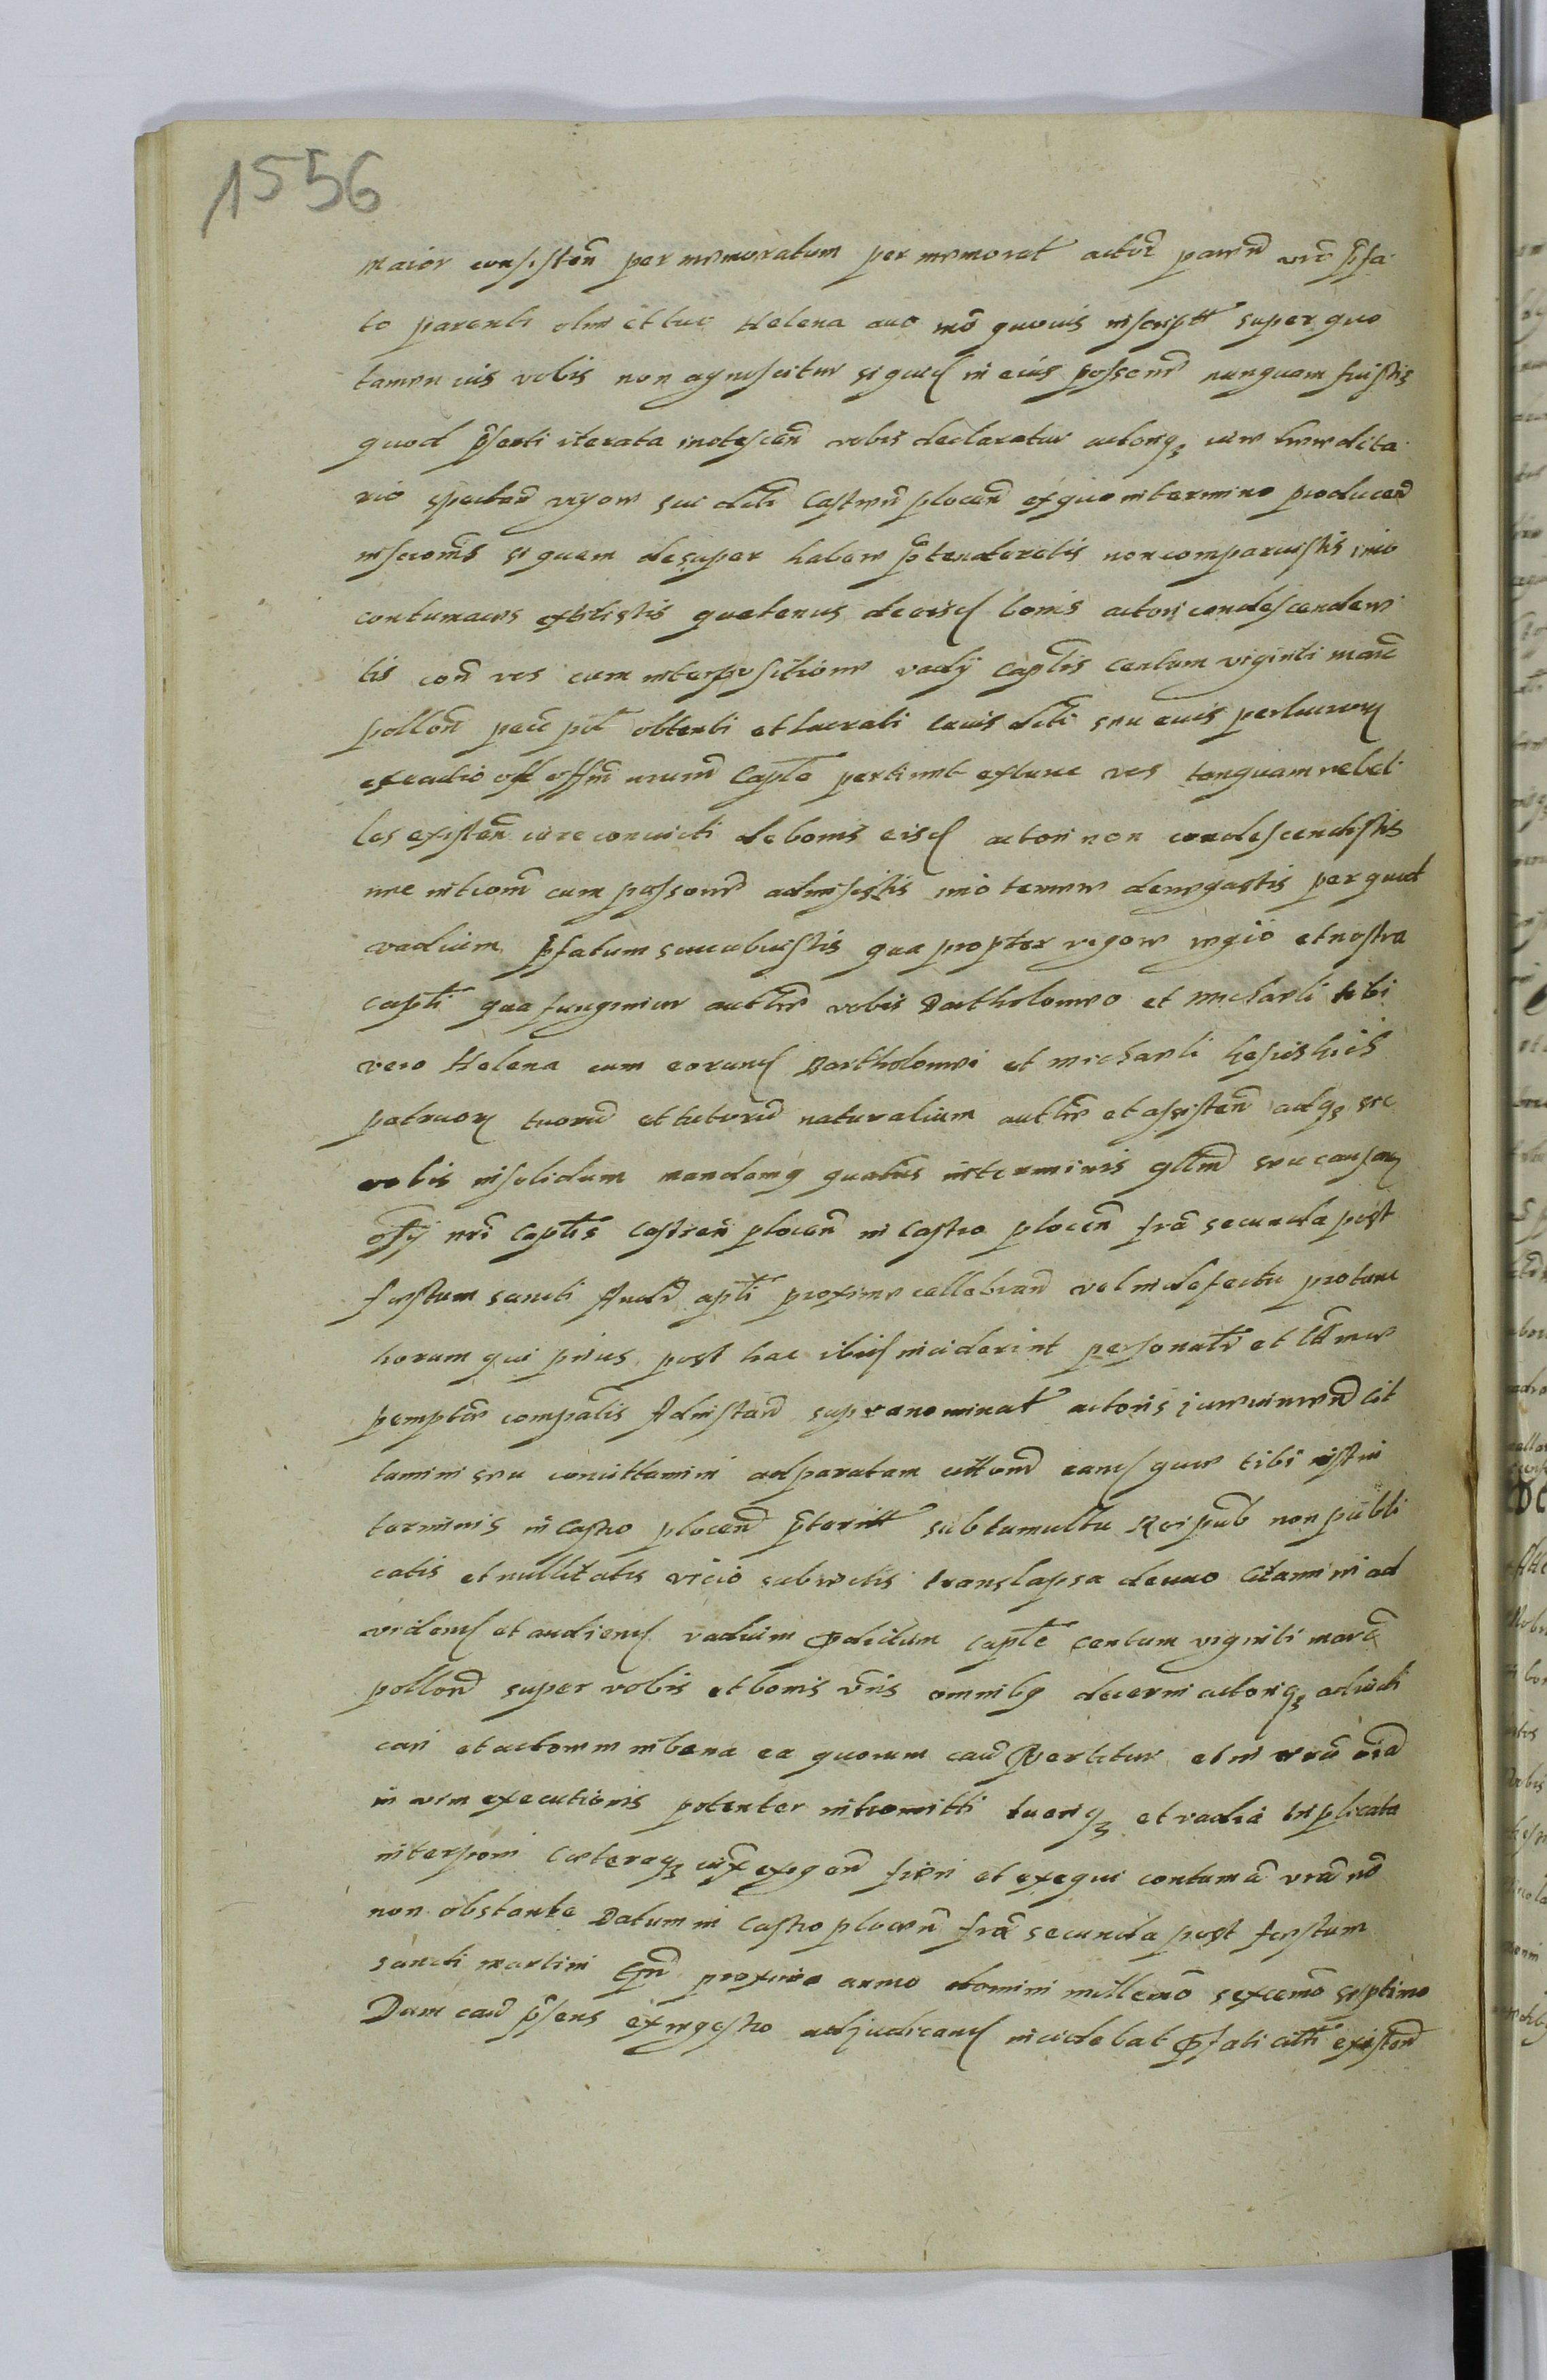 1556
maior consisteñ per memoratum per memorat actor pareñ vro p̃fa
to parenti olim et tuo Helena auo mõ quouis inscriptt super quo
tamen uis vobis non agnoscitur siquid in eius possione nunquam fuistis
quod p̃senti iterata inotesceñ vobis declaratur actoriq3 iure heredita
rio spectañ vigore sui dicti Castreñploceñ ex quo in termino produceñ
inscrionis si quam desuper habere p̃tenderetis non comparuistis imo
contumaces extitistis quatenus de eisd bonis actori condescendere
tis coñ vos cum interpositione vadij Captlis centum viginti marc
polloñ pecc obtenti et lucrati cuius dicti seu euis perlucror
executio off offm nrum Captle pertinet extunc vos tanquam rebel
les existeñ iure conuicti de bonis eisd actori non condescendistis
nec intromi cum possione admisistis imo temere denegastis per quod
vadium p̃fatum succubuistis qua propter vigore regio et nostra
captli qua fungimur auctte vobis Bartholomeo et Michaeli tibi
vero Helena cum eorund Bartholomei et Michaeli
patruor tuoru et tutoru naturalium auctte et assisteñ adq3 sic
vobis insolidum mandamq quatus in terminis qllm seu causar
offij nri Captlis Castreñ ploceñ in Castro ploceñ fra secunda post
festum sancti Andr aptli proxime cellebrañ vel in defectu protunc
horum qui prius post hac ibid inciderint personatr et ltt mee
pemptor compatis Ad instañ supranominat actoris cit
tamini seu concittamini ad paratam citton eand quae tibi istis in
terminis in Castro ploceñ p̃teritt sub tumultu Reipub non publi
catis et nullitatis vicio subiectis translapsa denuo Citamini ad
videnď et audienď vadium p̃dictum captle centum viginti marc
polloñ super vobis et bonis vris omnibq decerni actoriq3 adiudi
cari et actorem in bona ea quorum caũ vertitur et in
in vim executionis potenter intromitti tueriq3 et vadia triplicata
interponi Caeteraq3 iux exigeñ fieri et exequi contuma vra no
non obstante Datum in Castro ploceñ fra secunda post festum
sancti Martini proximo anno domini millemo sexcemo septimo
Dum caũ p̃sens ex regestro adjudicand incidebat p̃fati citti existeñ